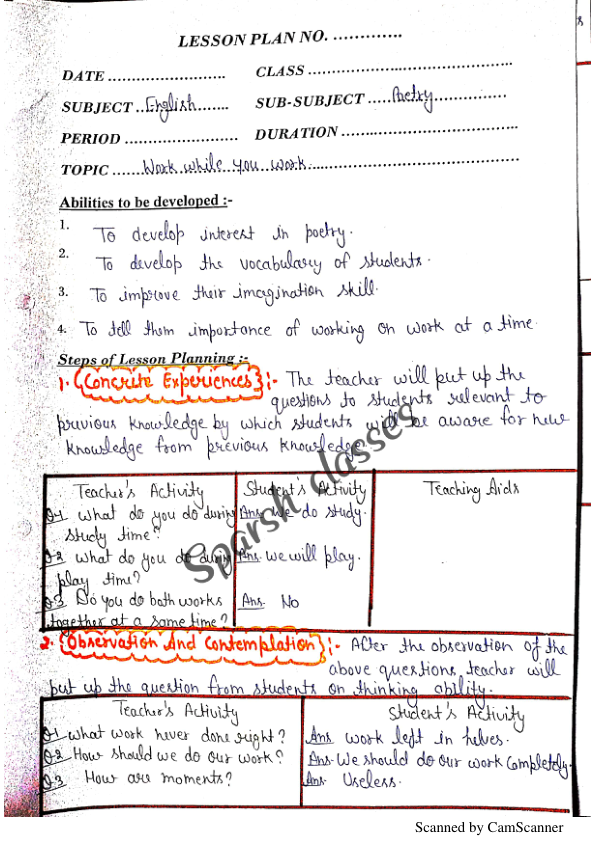 LESSON PLAN NO. .............
DATE ........................ CLASS ..........................................
SUBJECT ..English....... SUB-SUBJECT .....Poetry...............
PERIOD ....................... DURATION ....................................
TOPIC ......Work while you work...........................................
Abilities to be developed :-
1. To develop interest in poetry.
2. To develop the vocabulary of students.
3. To improve their imagination skill.
4. To tell them importance of working on work at a time.
Steps of Lesson Planning :-
1. Concrete Experiences :- The teacher will put up the
questions to students relevant to
previous knowledge by which students will be aware for new
knowledge from previous knowledge.
Teacher's Activity Student's Activity Teaching Aids
Q1 what do you do during Ans. We do study.
study time?
Q2 what do you do during Ans. we will play.
play time?
Q3 Do you do both works Ans. No
together at a same time?
2. Observation And Contemplation :- After the observation of the
above questions, teacher will
put up the question from students on thinking ability.
Teacher's Activity Student's Activity
Q1 what work never done right? Ans work left in helves.
Q2 How should we do our work? Ans. We should do our work completely.
Q3 How are moments? Ans. Useless.
Sparsh classes
Scanned by CamScanner